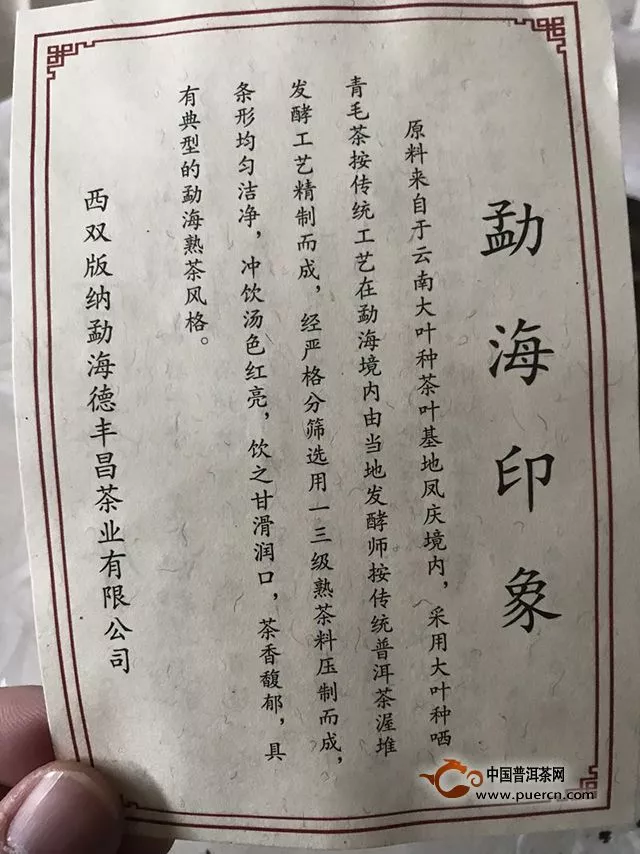 勐海印象
原料来自于云南大叶种茶叶基地凤庆境内，采用大叶种晒
青毛茶按传统工艺在勐海境内由当地发酵师按传统普洱茶渥堆
发酵工艺精制而成，经严格分筛选用一三级熟茶料压制而成，
条形均匀洁净，冲饮汤色红亮，饮之甘滑润口，茶香馥郁，具
有典型的勐海熟茶风格。
西双版纳勐海德丰昌茶业有限公司
中国普洱茶网
www.puercn.com